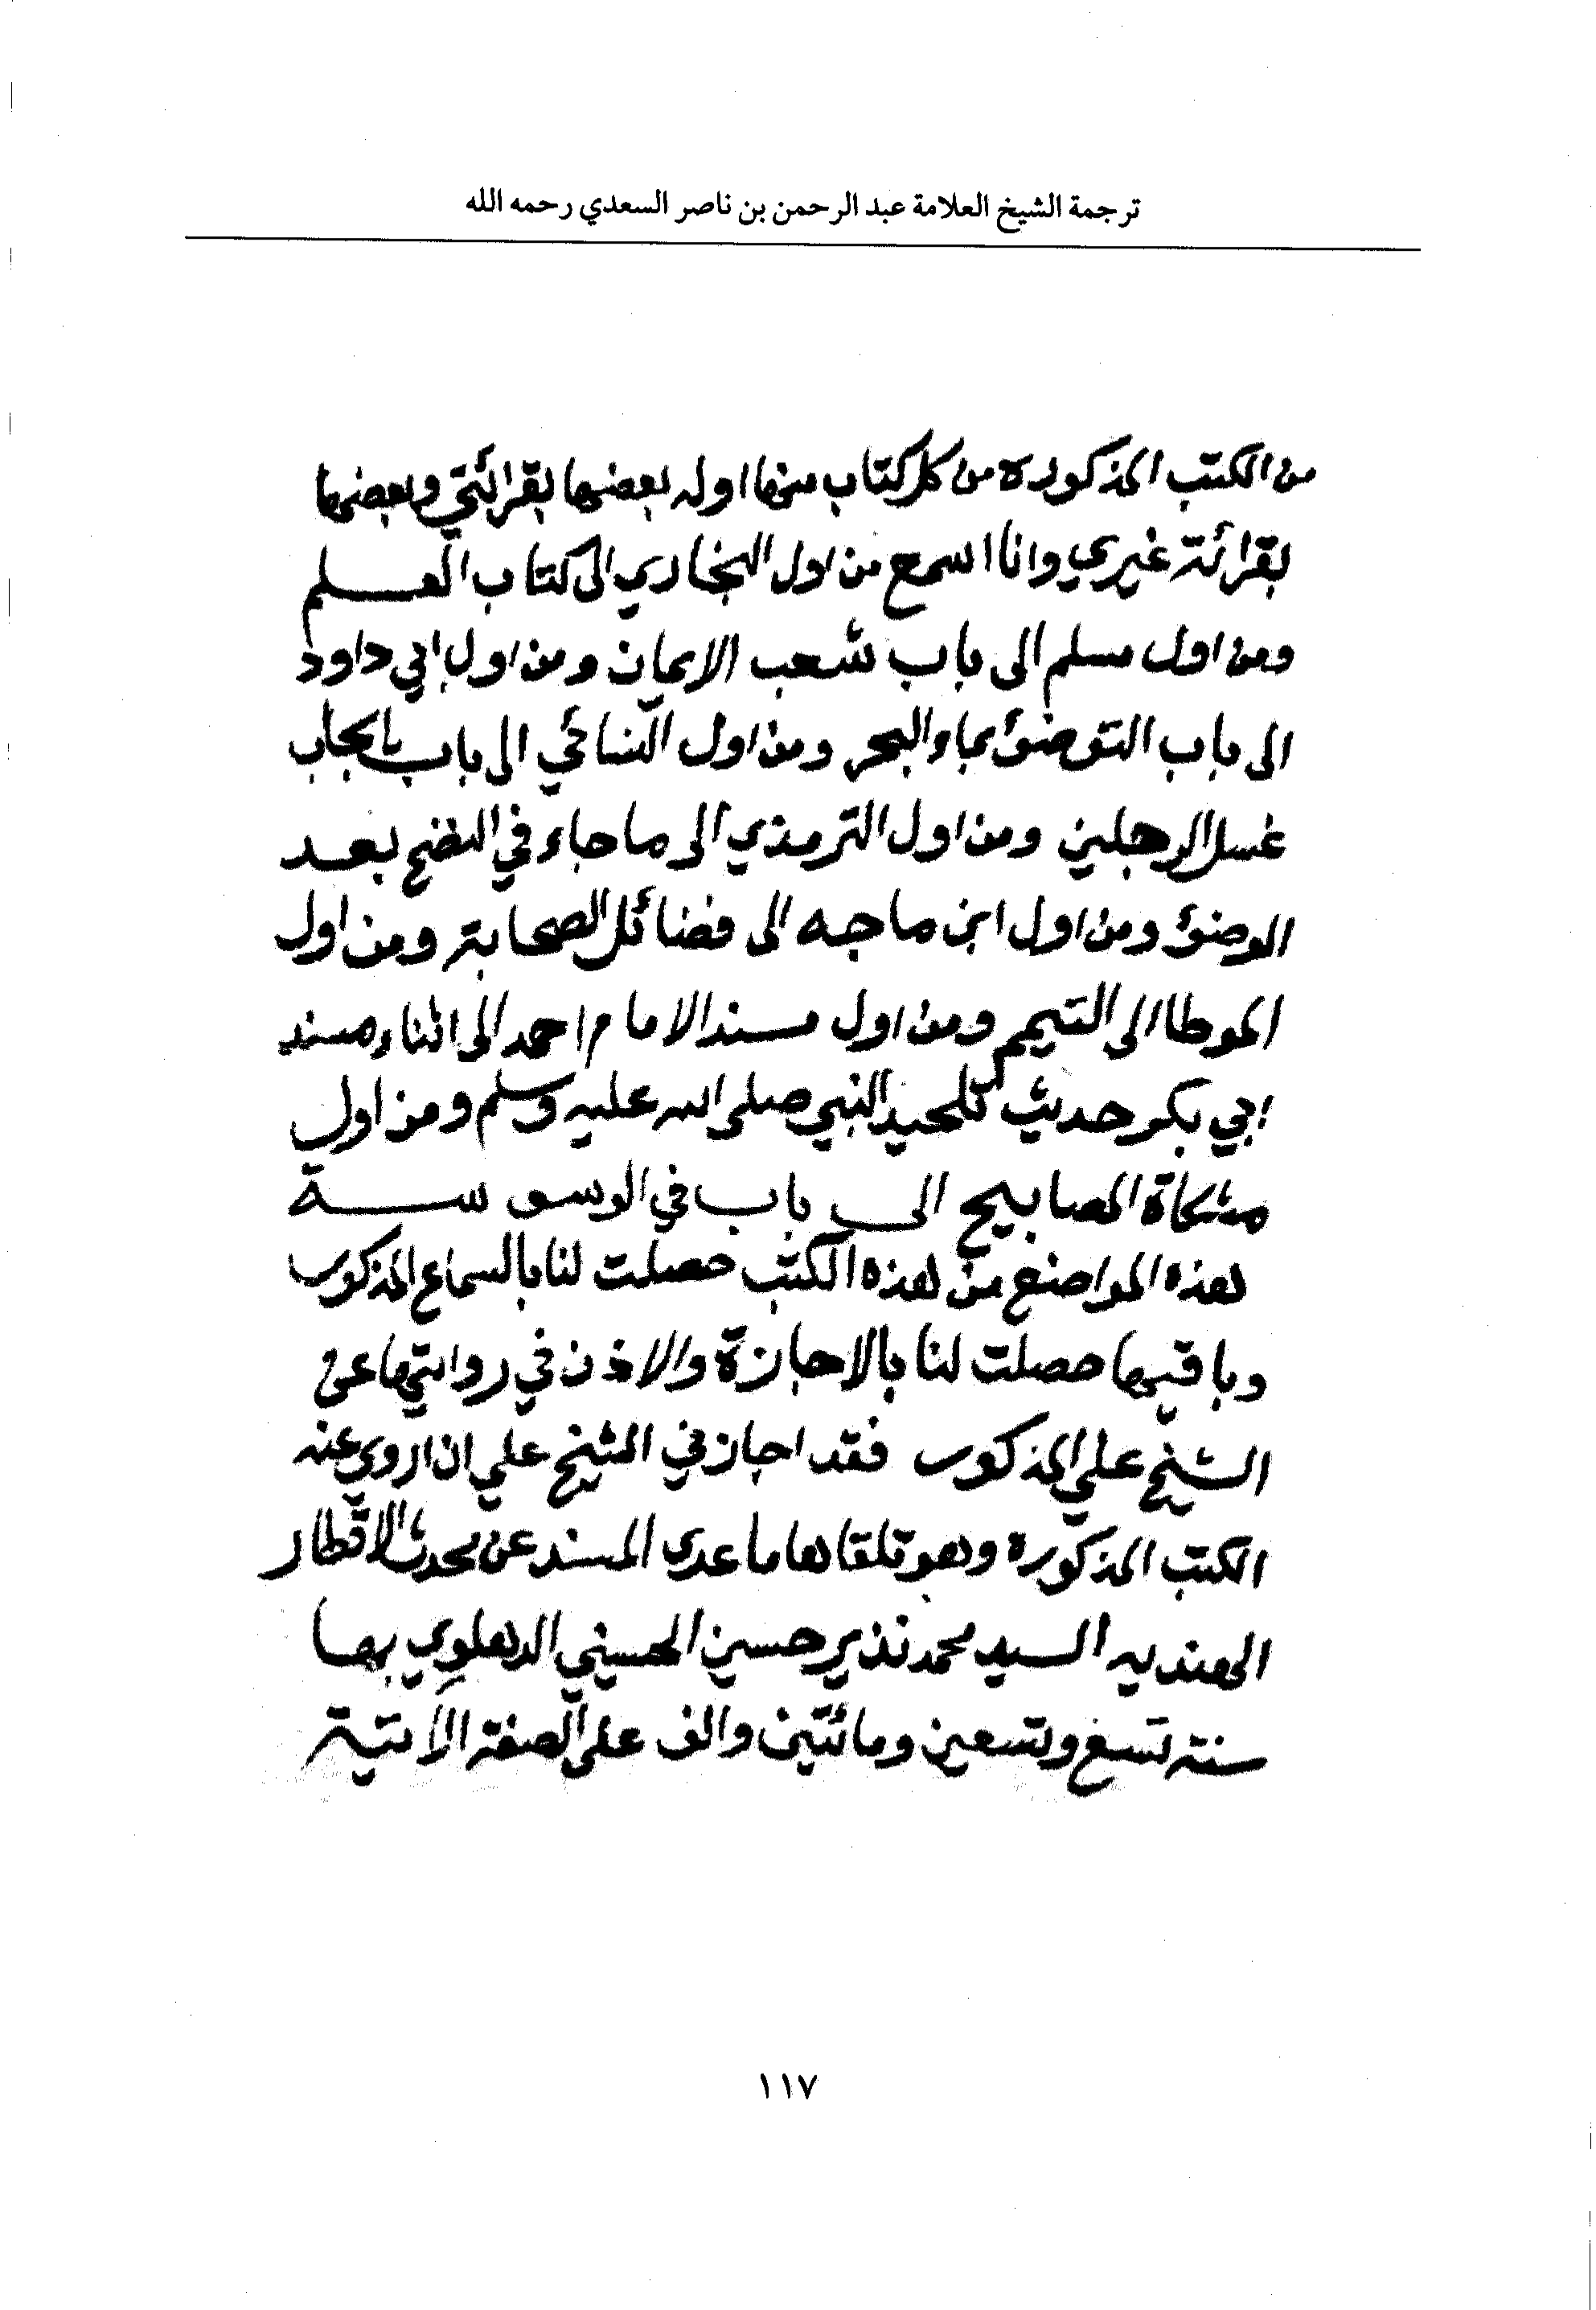 ترجمة الشيخ العلامة عبد الرحمن بن ناصر السعدي رحمه الله
من الكتب المذكورة من كل كتاب منها اوله بعضها بقرائتي وبعضها
بقرائة غيري وانا اسمع من اول البخاري الى كتاب العلم
ومن اول مسلم الى باب شعب الايمان ومن اول ابي داود
الى باب التوضؤ بماء البحر ومن اول النسائي الى باب بايجاب
غسل الرجلين ومن اول الترمذي الى ما جاء في النضح بعد
الوضوء ومن اول ابن ماجه الى فضائل الصحابة ومن اول
الموطا الى التيمم ومن اول مسند الامام احمد الى اثناء مسند
ابي بكر حديث النبي صلى الله عليه وسلم ومن اول
مشكاة المصابيح الى باب في الوسوسة
هذه المواضع من هذه الكتب حصلت لنا بالسماع المذكور
وباقيها حصلت لنا بالاجازة والاذن في روايتها عن
الشيخ علي المذكور فقد اجازني الشيخ علي ان اروي عنه
الكتب المذكورة وهو تلقاها ما عدى المسند عن محدث الاقطار
الهنديه السيد محمد نذير حسين الحسيني الدهلوي بها
سنة تسع وتسعين ومائتين والف على الصفة الآتية
١١٧